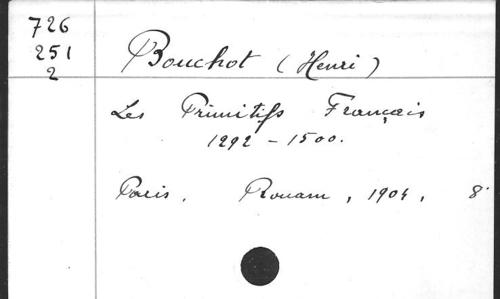 726
251
2
Bouchot (Henri)
Les Primitifs Français
1292 - 1500.
Paris. Rouam, 1904, 8°